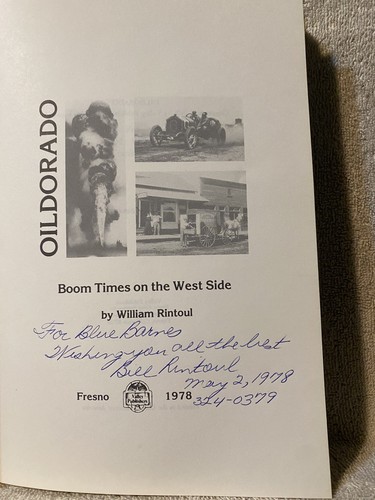 OILDORADO
Boom Times on the West Side
by William Rintoul
For Blue Barnes
Wishing you all the best
Bill Rintoul
May 2, 1978
324-0379
Fresno Valley Publishers 1978